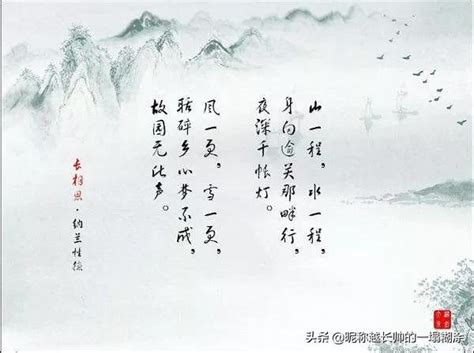 山一程，水一程，
身向逾关那畔行，
夜深千帐灯。
风一更，雪一更，
聒碎乡心梦不成，
故园无此声。
长相思·纳兰性德
头条 @昵称越长帅的一塌糊涂